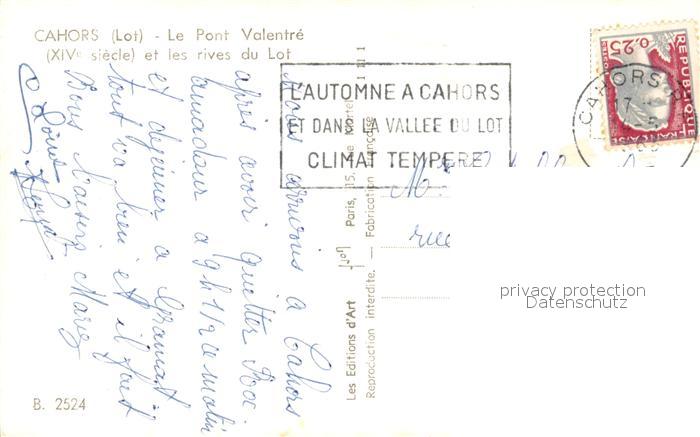 CAHORS (Lot) - Le Pont Valentré
(XIVe siècle) et les rives du Lot
Nous arrivons a Cahors
après avoir quitter Roc
amadour a 9h1/2 ce matin
et déjeuner a Gramat
tout va bien et il fait
Bons Baisers Marcy
L'AUTOMNE A CAHORS
ET DANS LA VALLEE DU LOT
CLIMAT TEMPERE
CAHORS
17
5
REPUBLIQUE
FRANÇAISE
0,25
Les Editions d'Art Yvon Paris, 15,
Reproduction interdite. — Fabrication Française
rue
privacy protection
Datenschutz
B. 2524